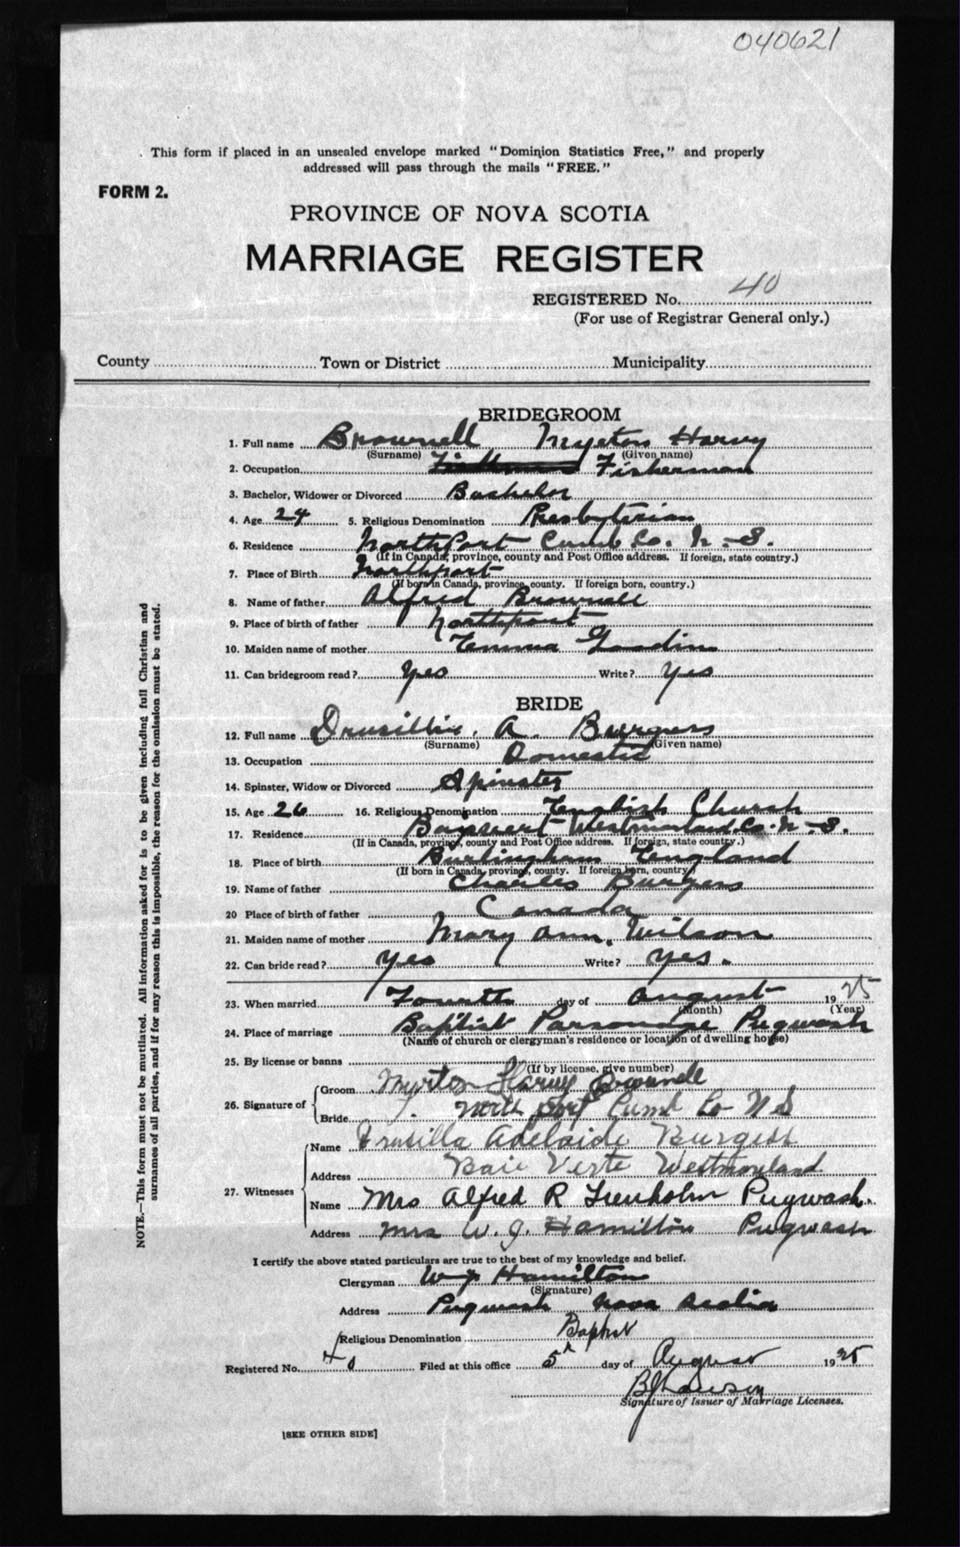 040621
This form if placed in an unsealed envelope marked "Dominion Statistics Free," and properly
addressed will pass through the mails "FREE."
FORM 2.
PROVINCE OF NOVA SCOTIA
MARRIAGE REGISTER
REGISTERED No. 40
(For use of Registrar General only.)
County Town or District Municipality
BRIDEGROOM
1. Full name Brownell Myrton Harvy
(Surname) (Given name)
2. Occupation Fisherman
3. Bachelor, Widower or Divorced Bachelor
4. Age 24 5. Religious Denomination Presbyterian
6. Residence NorthPort Cumb Co. N.-S.
(If in Canada, province, county and Post Office address. If foreign, state country.)
7. Place of Birth Northport
(If born in Canada, province, county. If foreign born, country.)
8. Name of father Alfred Brownell
9. Place of birth of father Northport
10. Maiden name of mother Emma Goodin
11. Can bridegroom read? Yes Write? Yes
BRIDE
12. Full name Drusillia. A. Burgess
(Surname) (Given name)
13. Occupation Domestic
14. Spinster, Widow or Divorced Spinster
15. Age 26 16. Religious Denomination English Church
17. Residence Westmorland Co. N.-S.
(If in Canada, province, county and Post Office address. If foreign, state country.)
18. Place of birth Burlingham England
(If born in Canada, province, county. If foreign born, country)
19. Name of father Charles Burgess
20 Place of birth of father Canada
21. Maiden name of mother Mary Ann. Wilson
22. Can bride read? Yes Write? Yes.
23. When married Fourth day of August 1925
(Month) (Year)
24. Place of marriage Baptist Parsonage Pugwash
(Name of church or clergyman's residence or location of dwelling house)
25. By license or banns
(If by license, give number)
26. Signature of Groom Myrton Harvy Brownell
Bride North Port Cumb Co N S
27. Witnesses Name Drusilla Adelaide Burgess
Address Baie Verte Westmoreland
Name Mrs Alfred R Trenholm Pugwash.
Address Mrs W. J. Hamilton Pugwash
I certify the above stated particulars are true to the best of my knowledge and belief.
Clergyman W J Hamilton
(Signature)
Address Pugwash Nova Scotia
Religious Denomination Baptist
Registered No. 40 Filed at this office 5th day of August 1925
Signature of Issuer of Marriage Licenses.
[SEE OTHER SIDE]
NOTE.—This form must not be mutilated. All information asked for is to be given including full Christian and
surnames of all parties, and if for any reason this is impossible, the reason for the omission must be stated.